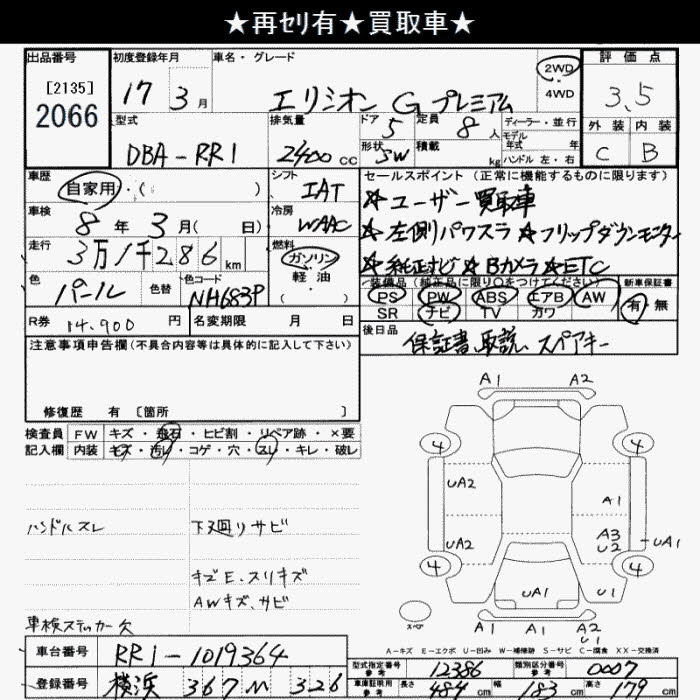 ★再セリ有★買取車★
出品番号 初度登録年月 車名・グレード 2WD 評価点
[2135]
2066
17 3月 エリシオン Gプレミアム ・4WD 3.5
型式 排気量 ドア 5 定員 8人 ディーラー・並行 外装 内装
DBA-RR1 2400cc 形状 SW 積載 kg モデル年式 年 ハンドル 左・右 C B
車歴 シフト セールスポイント (正常に機能するものに限ります)
自家用・( ) IAT ★ユーザー買取車
車検 冷房
8年 3月( 日) WAAC ★左側パワスラ ★フリップダウンモニター
走行 燃料
3万1千286km ガソリン ★純正ナビ ★Bカメラ ★ETC
色 色替 色コード 軽油 装備品(純正品に限り○をつけてください) 新車保証書
パール NH683P ( ) PS PW ABS エアB AW 有 無
SR ナビ TV カワ
R券 14,900円 名変期限 月 日 後日品
保証書、取説、スペアキー
注意事項申告欄(不具合内容等は具体的に記入して下さい)
修復歴 有 [箇所 ]
検査員 FW キズ・飛石・ヒビ割・リペア跡・×要
記入欄 内装 キズ・汚レ・コゲ・穴・スレ・キレ・破レ
ハンドルスレ 下廻りサビ
キズE、スリキズ
AWキズ、サビ
車検ステッカー欠
A1 A2
4 4
UA2 A1
UA2 A3 U2 UA1
4 4
UA1 U1
スペア
A1 A1 A2
U1
A-キズ E-エクボ U-凹み W-補修跡 S-サビ C-腐食 XX-交換済
車台番号 RR1-1019364
登録番号 横浜 367 M 326
型式指定番号 参考 12386 類別区分番号 参考 0007
車庫証明用 参考 長さ 484cm 幅 183cm 高さ 179cm